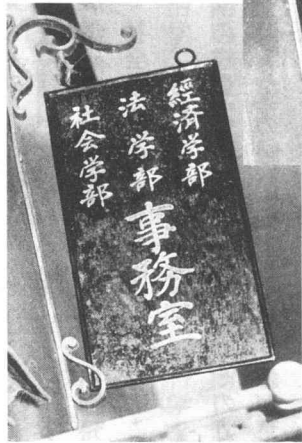 經済学部
法学部
社会学部
事務室